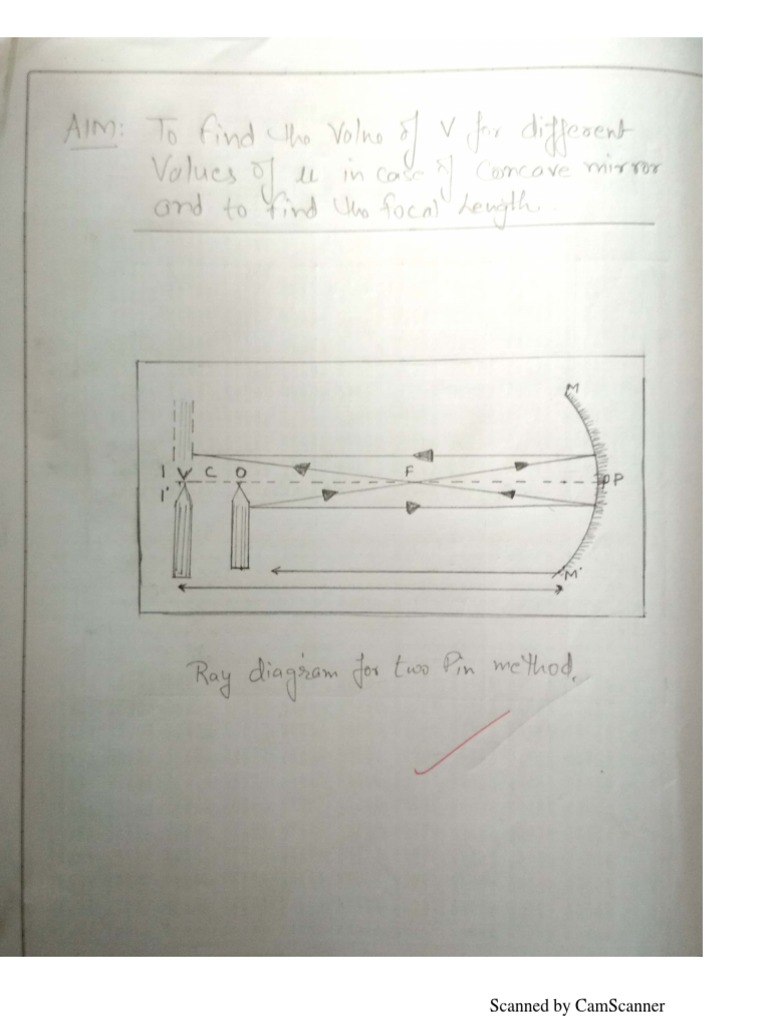 AIM: To find the Value of V for different
Values of u in case of Concave mirror
and to find the focal Length.
M
I V C O F P
I'
M'
Ray diagram for two Pin method.
Scanned by CamScanner